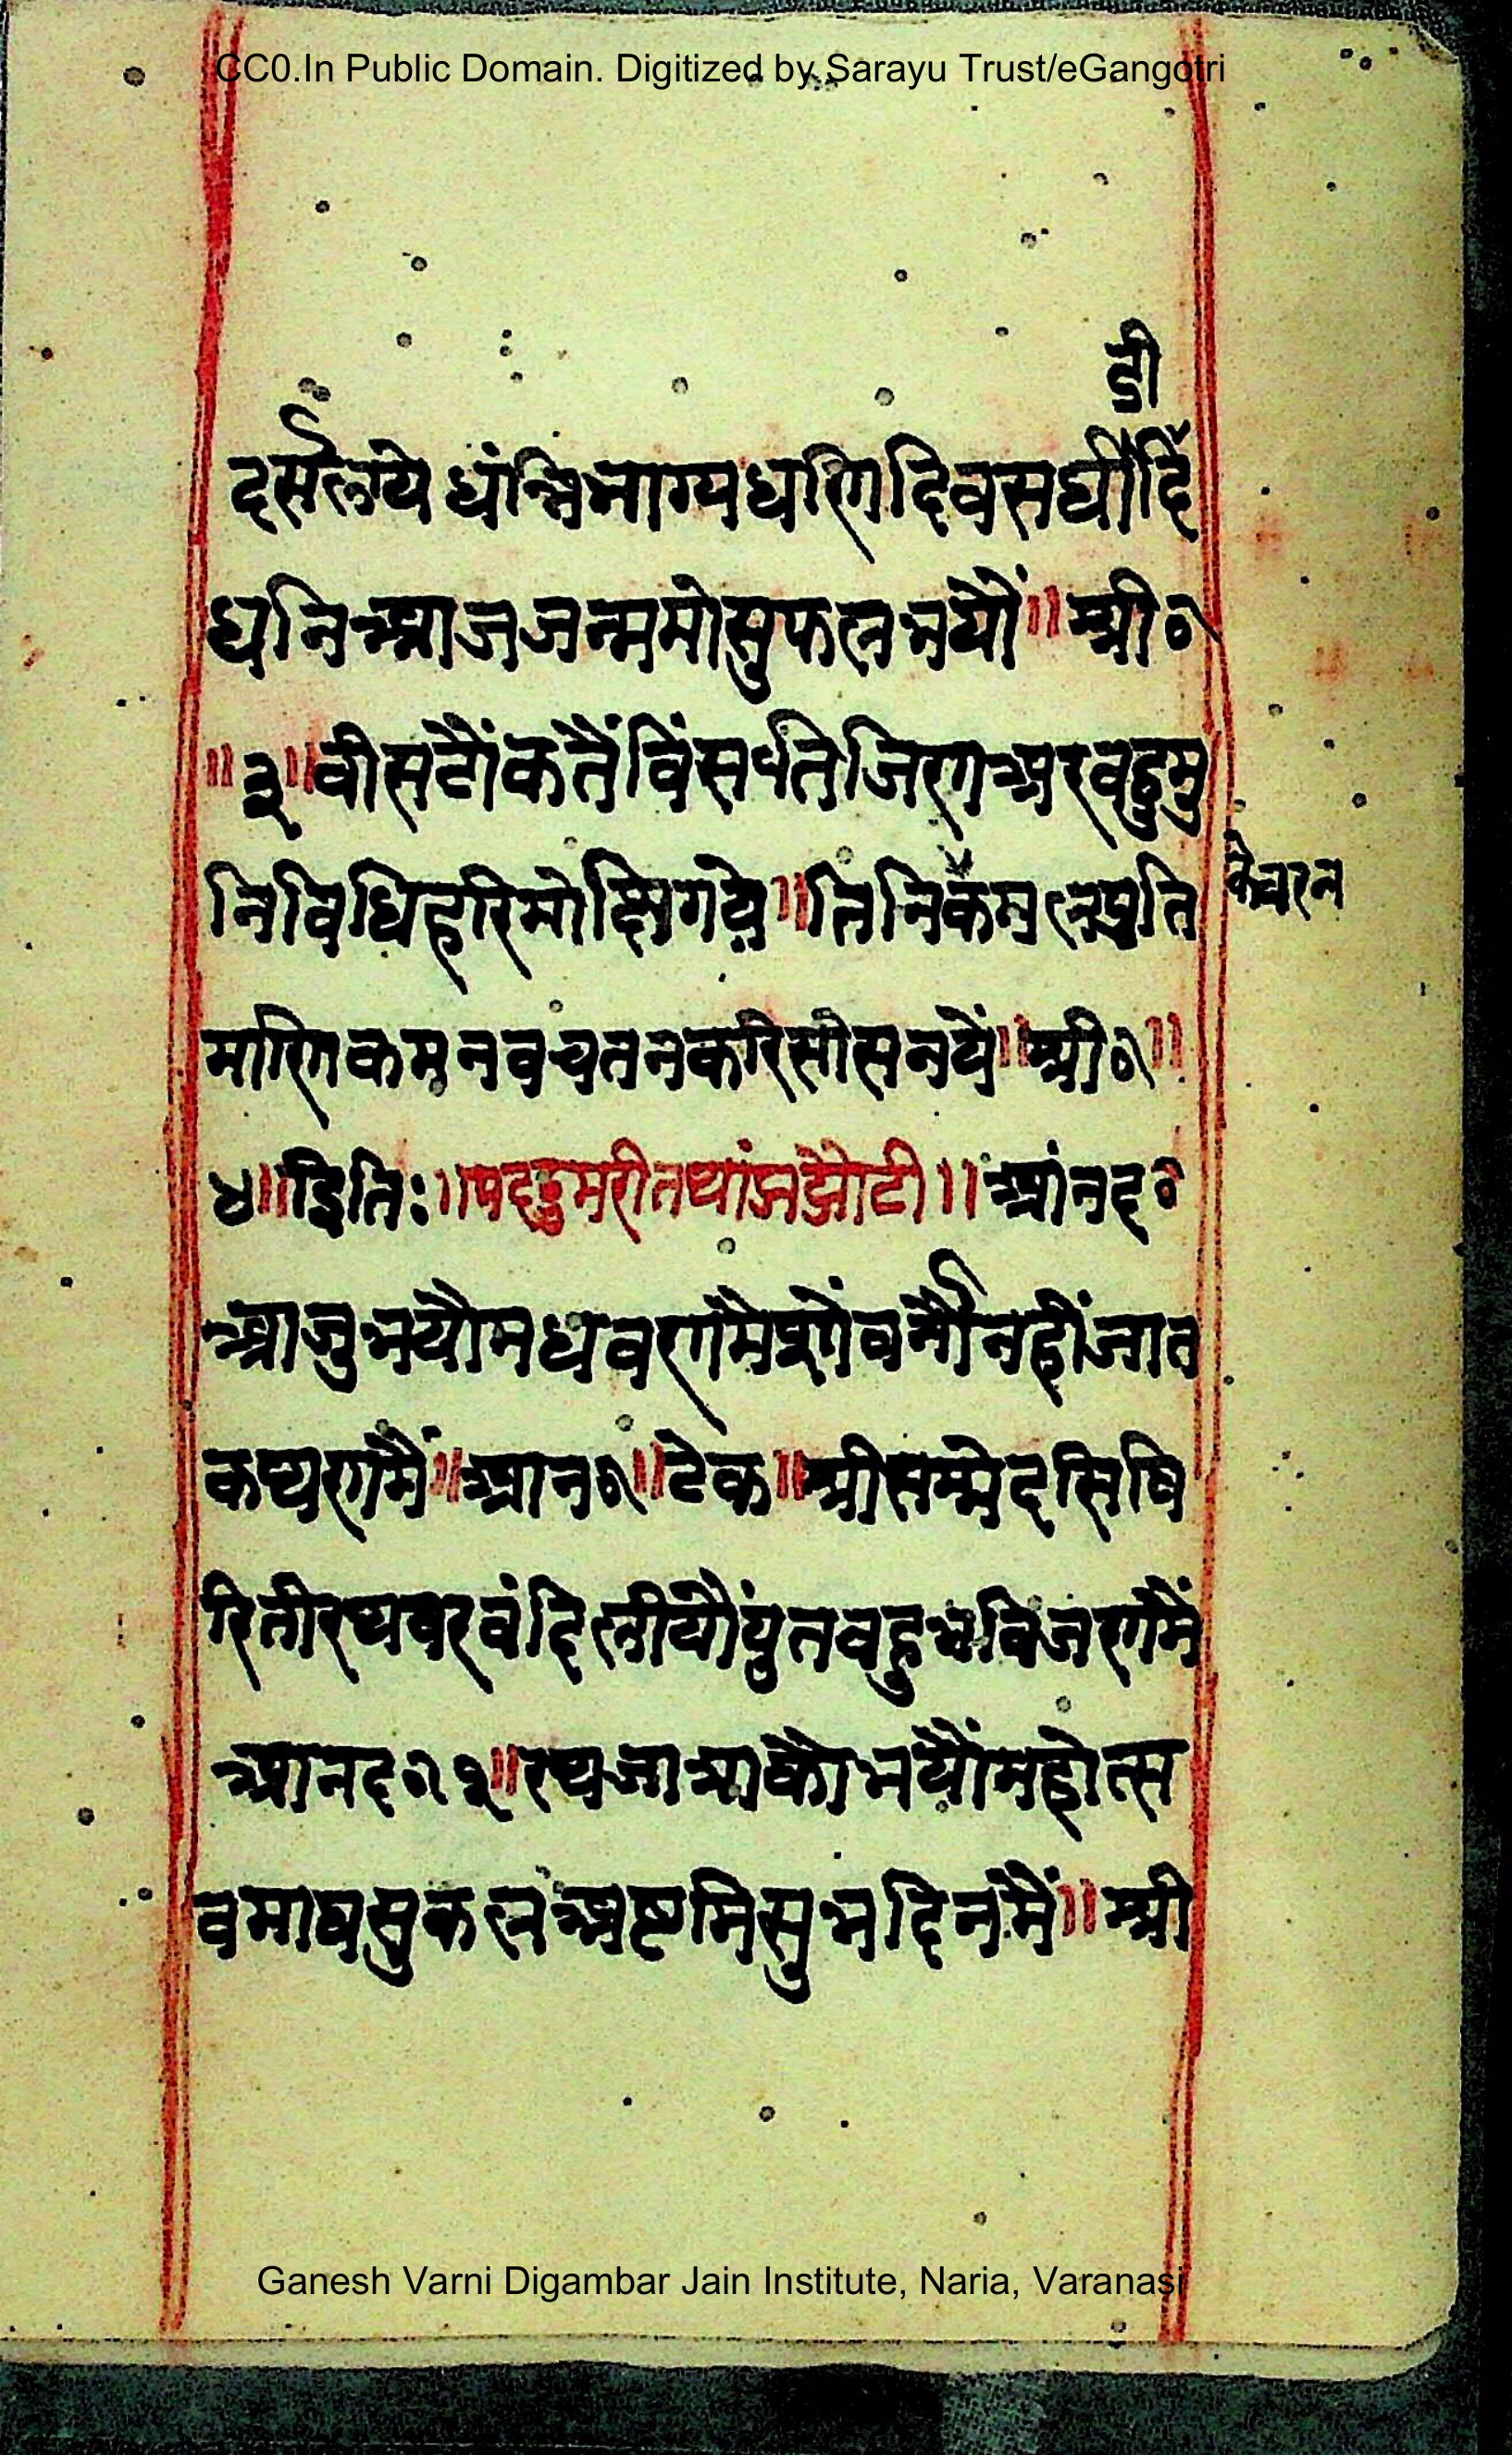 CC0.In Public Domain. Digitized by Sarayu Trust/eGangotri
डी
दर्सलये धंन्निभाग्यधरिगदिवसघौदिँ
धनिआजजन्ममोसुफलभयौं॥श्री०
॥३॥वीसटौंकतैंविंसप्तिजिरणअरवहुमु
निविधिहरिमोक्षिगये॥तिनिकेमलप्रति
केचरन
मारिगकमनवचतनकरिसीसनयें॥श्री०॥
४॥इितिः॥पददुमरीतथांऊझौटी॥आंनद०
आजुभयौमधवरणमैशोंवर्नौनहींजात
कप्यरगमैं॥आन०॥टेक॥श्रीसम्मेदसिषि
रितीरथवरवंदिलीयौंयुतवहुभविजरगमैं
आनद०१॥रथजात्राकौभयौंमहोत्स
वमाघसुकलअष्टमिसुभदिनमैं॥श्री
Ganesh Varni Digambar Jain Institute, Naria, Varanasi